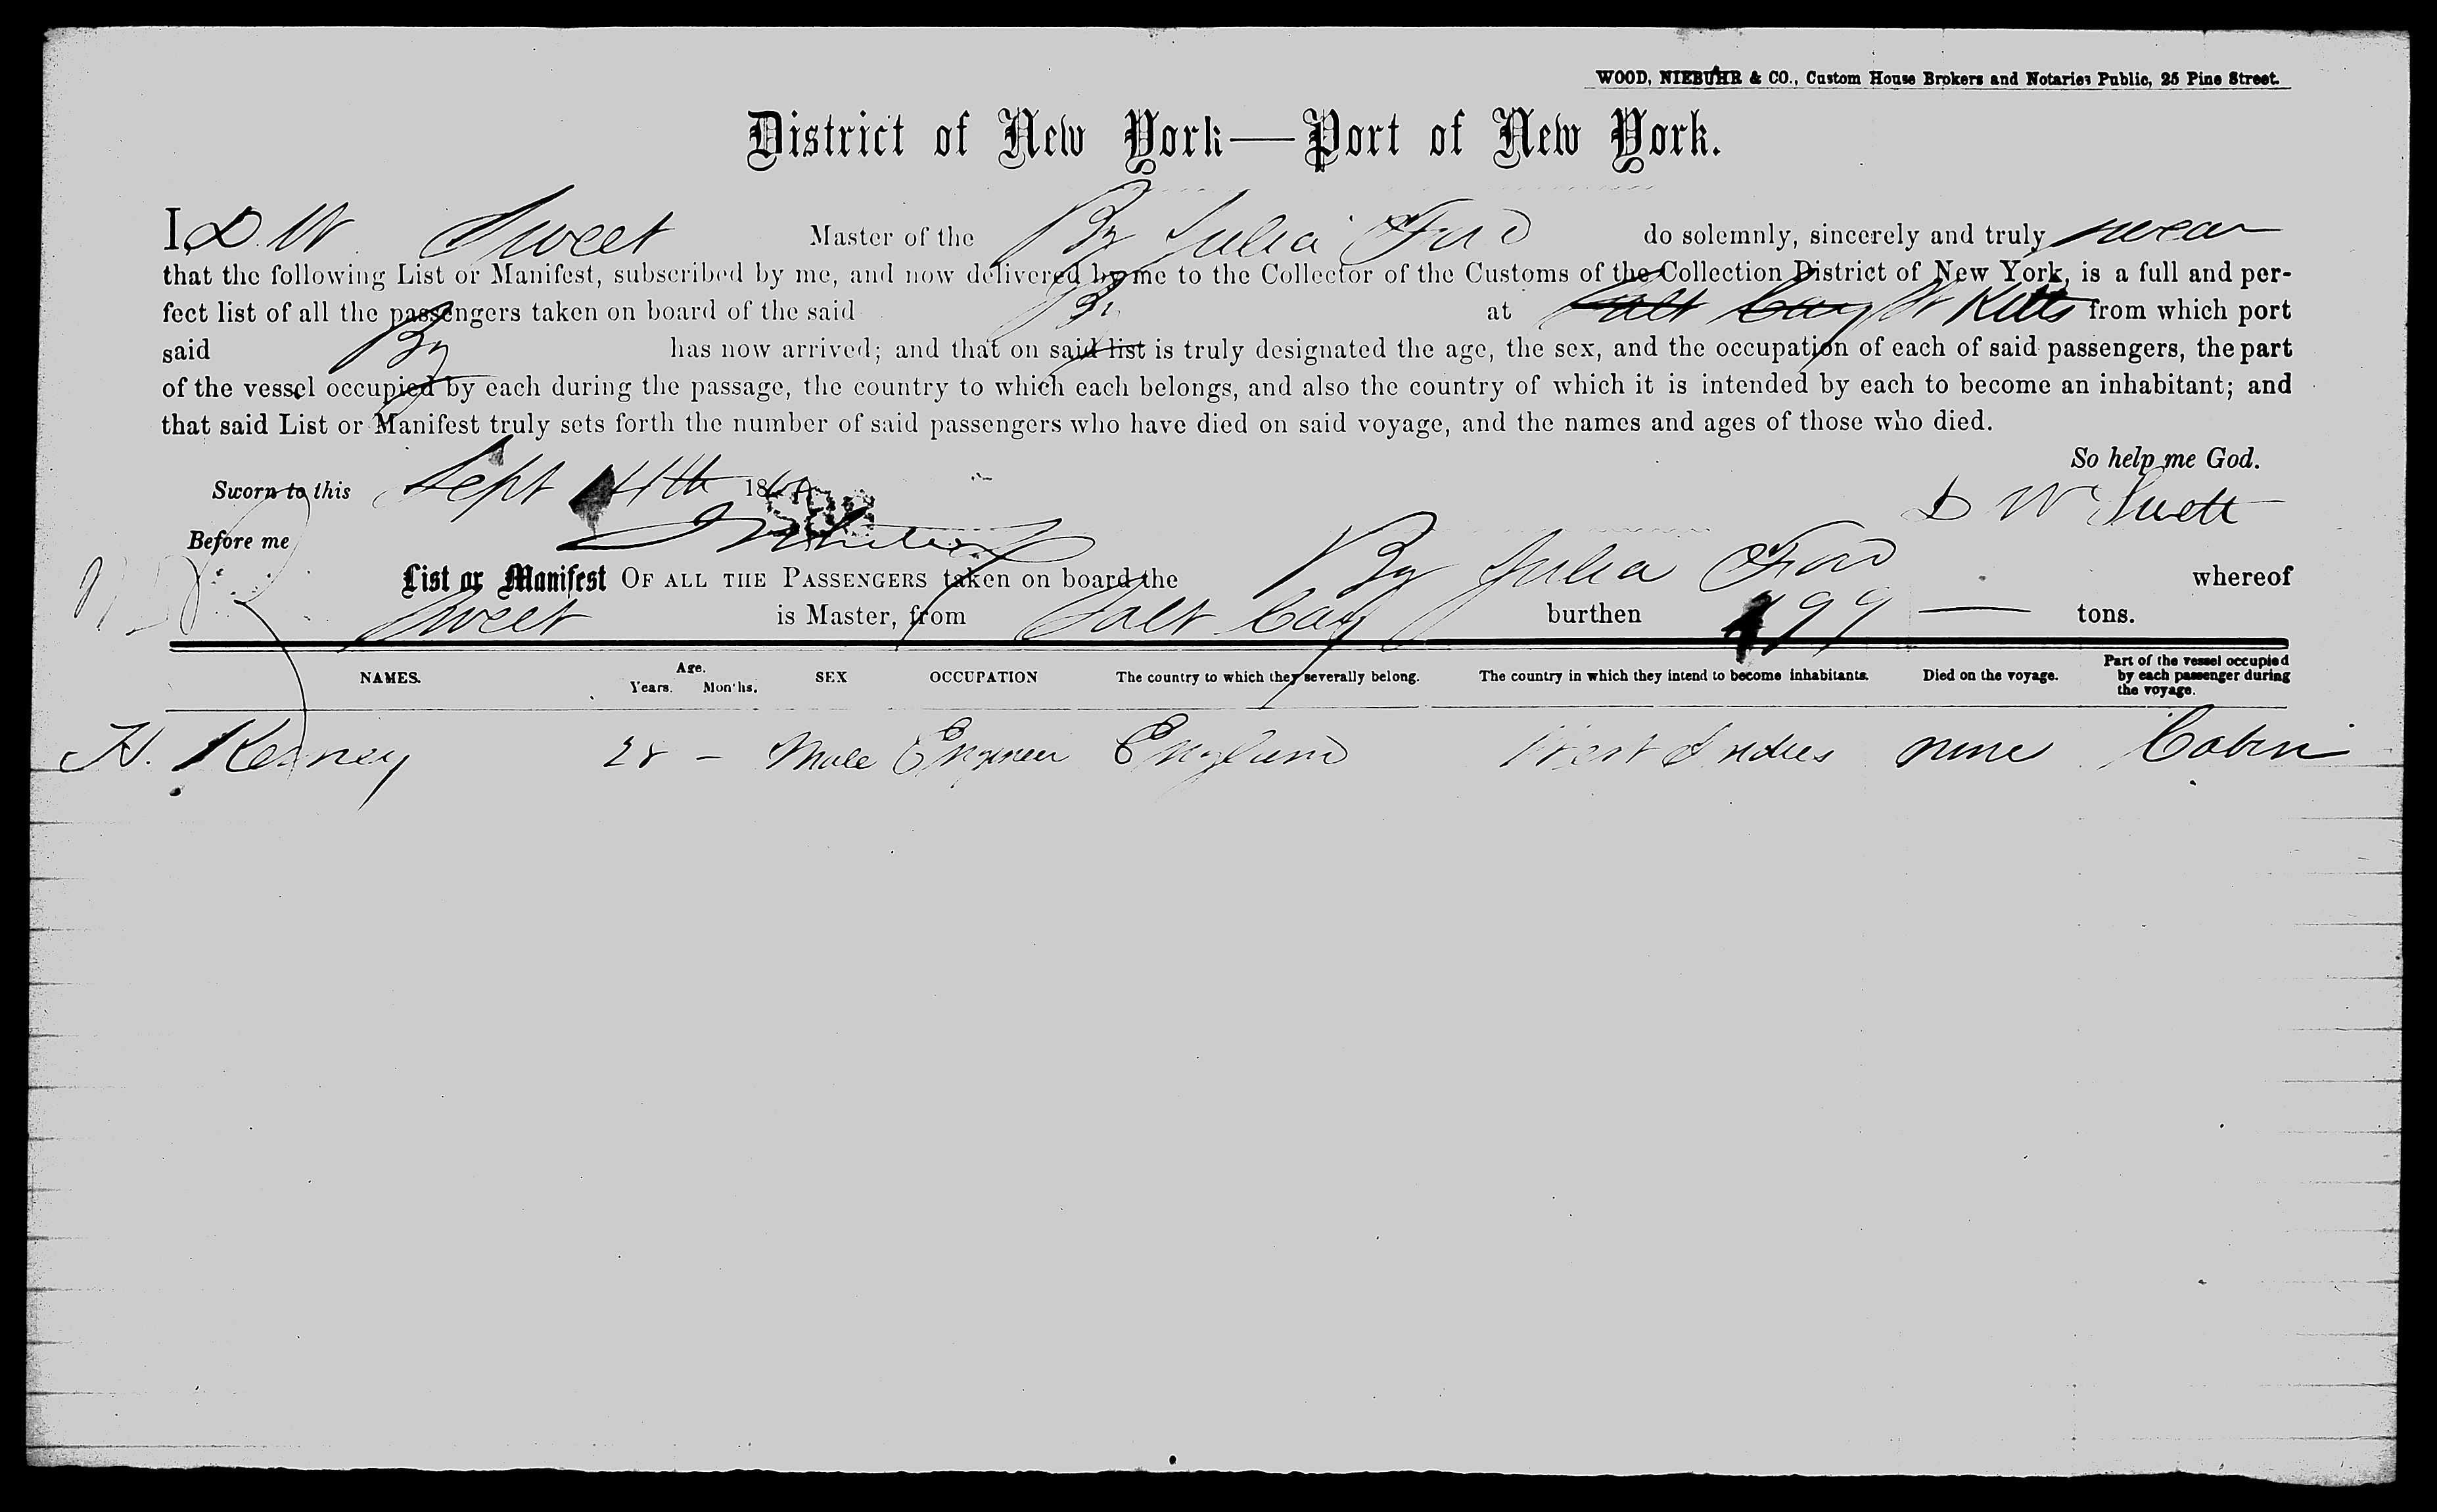 WOOD, NIEBUHR & CO., Custom House Brokers and Notaries Public, 25 Pine Street.
District of New York—Port of New York.
I, D. W. Sweet Master of the Bg Julia Ford do solemnly, sincerely and truly swear
that the following List or Manifest, subscribed by me, and now delivered by me to the Collector of the Customs of the Collection District of New York, is a full and per-
fect list of all the passengers taken on board of the said Bg at Salt Cay St Kitts from which port
said Bg has now arrived; and that on said list is truly designated the age, the sex, and the occupation of each of said passengers, the part
of the vessel occupied by each during the passage, the country to which each belongs, and also the country of which it is intended by each to become an inhabitant; and
that said List or Manifest truly sets forth the number of said passengers who have died on said voyage, and the names and ages of those who died.
So help me God.
Sworn to this Sept 186
D W Swett
Before me
List or Manifest OF ALL THE PASSENGERS taken on board the Bg Julia Ford whereof
Sweet is Master, from Salt Cay burthen 199 — tons.
NAMES. Age. Years. Months. SEX OCCUPATION The country to which they severally belong. The country in which they intend to become inhabitants. Died on the voyage. Part of the vessel occupied by each passenger during the voyage.
H. Kearney 28 – Male Engineer England West Indies none Cabin